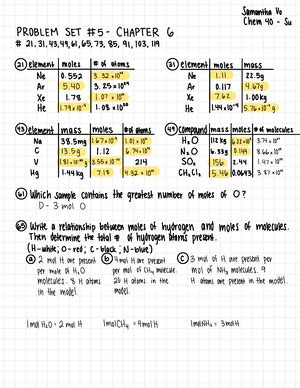 Samantha Vo
Chem 40 - Su
PROBLEM SET #5 - CHAPTER 6
# 21, 31, 43, 49, 61, 65, 73, 85, 91, 103, 119
21 element moles # of atoms
Ne 0.552
Ar 5.40
Xe 1.78
He
31 element moles mass
Ne 1.11 22.5g
Ar 0.117 4.67g
Xe 7.62 1.00kg
He
43 element mass moles # of atoms
Na 38.5mg
C 13.5g 1.12
V 214
Hg 1.44kg 7.18
49 compound mass moles
H₂O 112 kg
N₂O 6.33g 0.144
SO₂ 156 2.44
CH₂Cl₂ 5.46 0.0643
61 Which sample contains the greatest number of moles of O?
D - 3 mol O
65 Write a relationship between moles of hydrogen and moles of molecule.
Then determine the total # of hydrogen atoms present.
(H-white; O-red; C-black; N-blue)
a 2 mol H are present
per mole of H₂O
molecules. 8 H atoms
in the model.
b 4 mol H are present
per mol of CH₄ molecule.
H atoms are present
in the model.
c 3 mol of H are present per
mol of NH₃ molecules. 9
H atoms are present in the model.
1 mol H₂O = 2 mol H
1 mol CH₄ = 4 mol H
1 mol NH₃ = 3 mol H